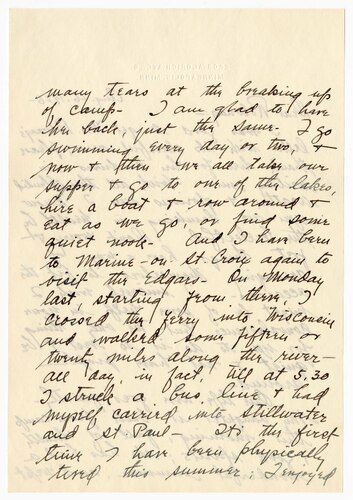 many tears at the breaking up
of camp - I am glad to have
her back, just the same - I go
swimming every day or two, &
now & then we all take our
supper & go to one of the lakes,
hire a boat & row around &
eat as we go, or find some
quiet nook - And I have been
to Marine-on-St. Croix again to
visit the Edgars - On Monday
last, starting from there, I
crossed the ferry into Wisconsin
and walked some fifteen or
twenty miles along the river -
all day, in fact, till at 5.30
I struck a bus line & had
myself carried into Stillwater
and St Paul - It's the first
time I have been physically
tired this summer; I enjoyed